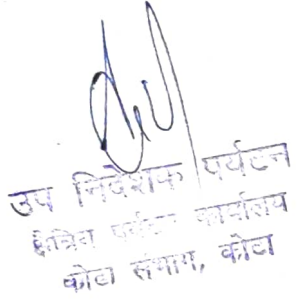 उप निदेशक पर्यटन
क्षेत्रिय पर्यटन कार्यालय
कोटा संभाग, कोटा